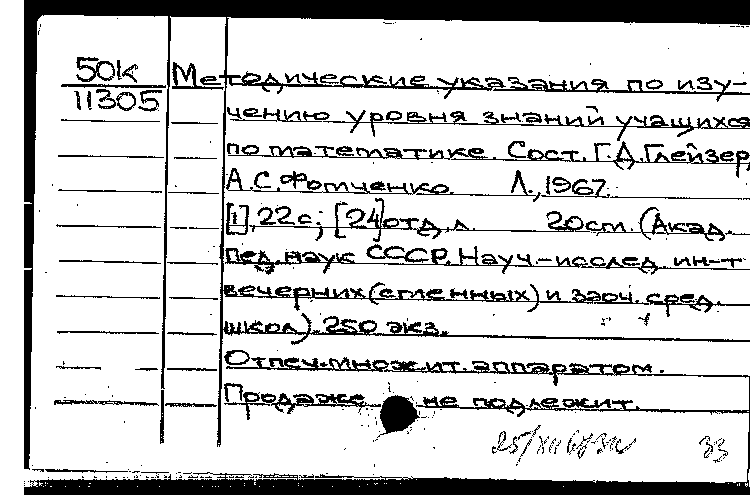 50к Методические указания по изу-
11305 чению уровня знаний учащихся
по математике. Сост. Г.Д.Глейзер,
А.С.Фомченко. Л.,1967.
[1],22с; [24]отд.л. 20см. (Акад.
пед.наук СССР. Науч.-исслед. ин-т
вечерних(сменных) и заоч. сред.
школ). 250 экз.
Отпеч.множит.аппаратом.
Продаже не подлежит.
33